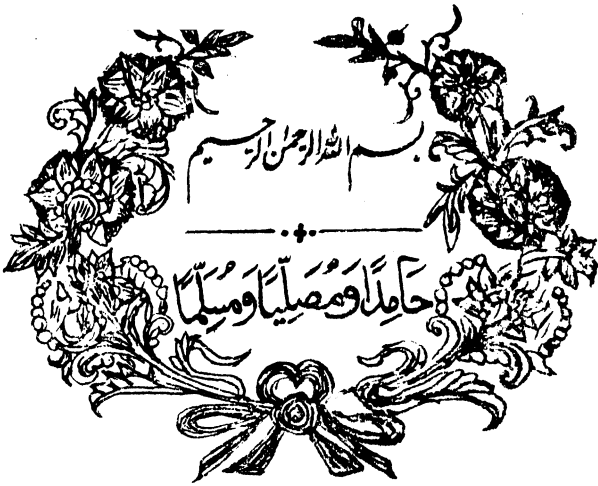 بسم الله الرحمٰن الرحیم
حَامِدًا وَّمُصَلِّیًا وَّمُسَلِّمًا